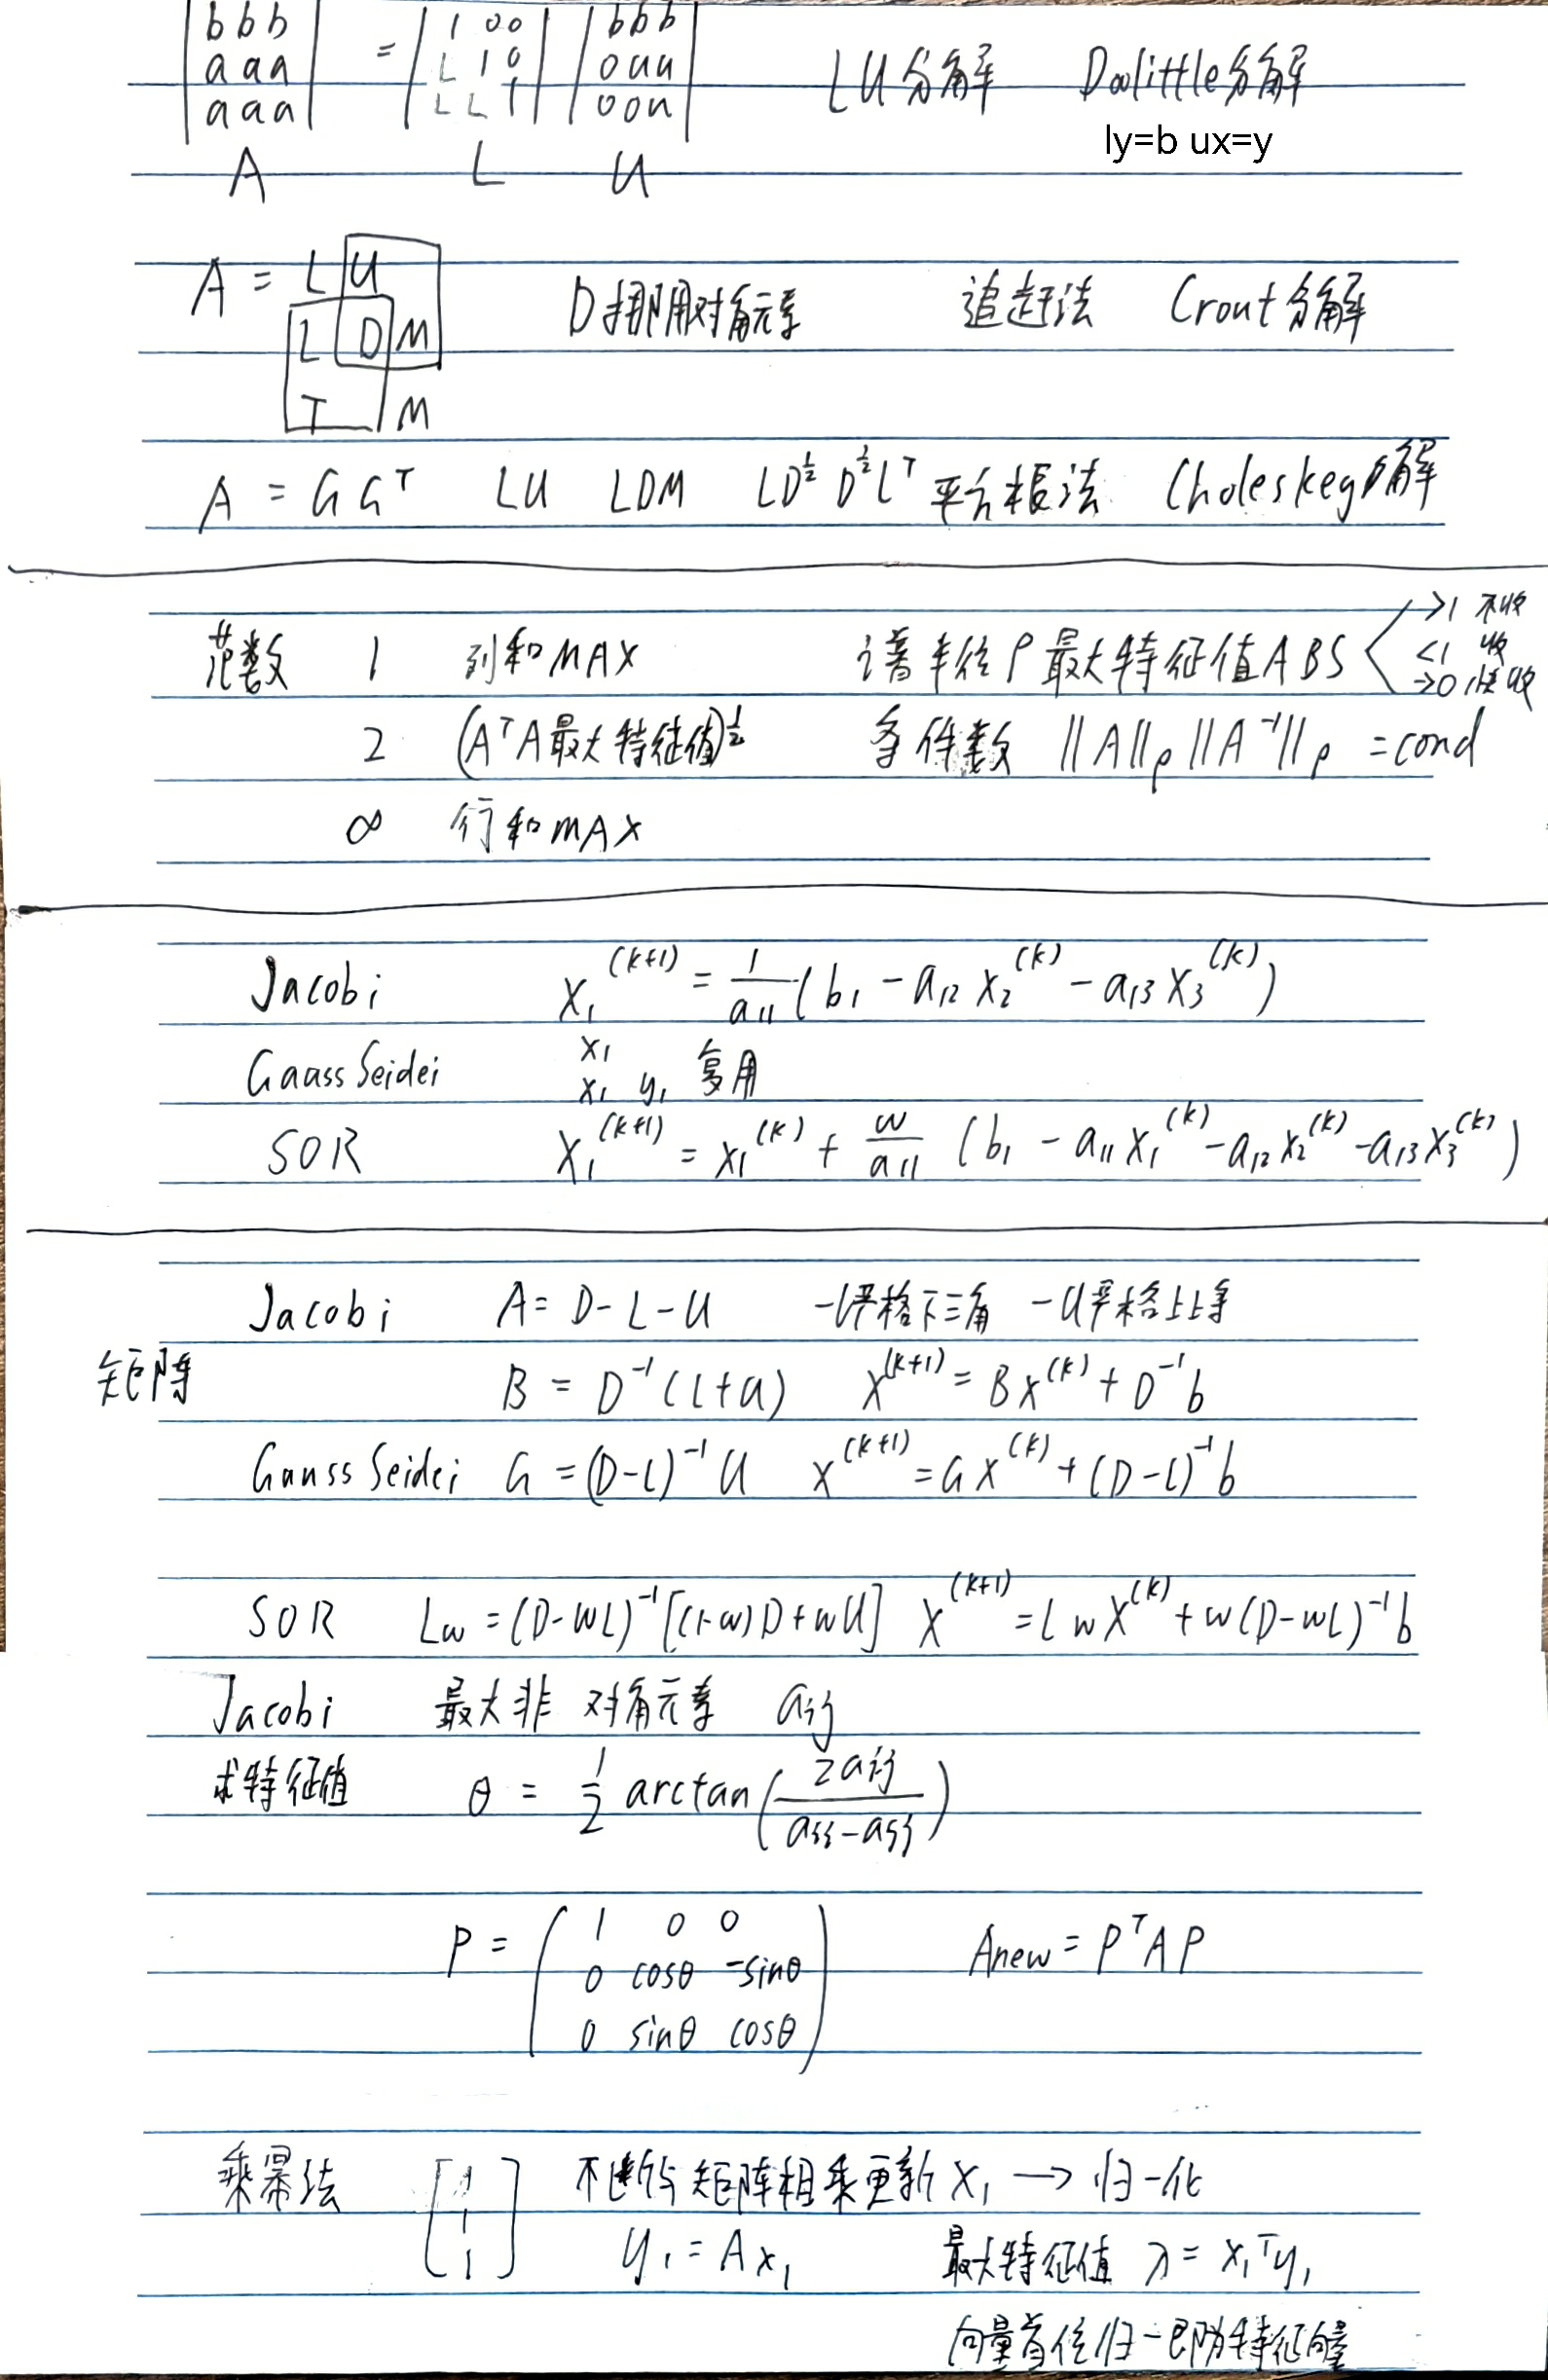 b b b = 1 0 0 b b b
a a a L 1 0 0 u u LU分解 Doolittle分解
a a a L L 1 0 0 u
ly=b ux=y
A L U
A = L U
L D M D挪用对角元素 追赶法 Crout分解
T M
A = G Gᵀ LU LDM LD^½ D^½ Lᵀ 平方根法 Choleskey分解
范数 1 列和MAX 谱半径ρ最大特征值ABS >1 不收
<1 收
→0 快收
2 (AᵀA最大特征值)^½ 条件数 ||A||ρ ||A⁻¹||ρ = cond
∞ 行和MAX
Jacobi X₁^(k+1) = 1/a₁₁ (b₁ - a₁₂ X₂^(k) - a₁₃ X₃^(k))
Gaass Seidei x₁
x₁ y₁ 复用
SOR X₁^(k+1) = x₁^(k) + w/a₁₁ (b₁ - a₁₁ x₁^(k) - a₁₂ x₂^(k) - a₁₃ x₃^(k))
Jacobi A = D - L - U -L严格下三角 -U严格上三角
矩阵 B = D⁻¹(L+U) X^(k+1) = BX^(k) + D⁻¹b
Gauss Seidei G = (D-L)⁻¹U X^(k+1) = GX^(k) + (D-L)⁻¹b
SOR Lw = (D-wL)⁻¹[(1-w)D+wU] X^(k+1) = LwX^(k) + w(D-wL)⁻¹b
Jacobi 最大非对角元素 aij
求特征值 θ = 1/2 arctan(2aij / aii-ajj)
P = 1 0 0
0 cosθ -sinθ Anew = PᵀAP
0 sinθ cosθ
乘幂法 [1 1 1] 不断与矩阵相乘更新X₁ → 归一化
y₁ = Ax₁ 最大特征值 λ = x₁ᵀy₁
向量首位归一即为特征向量